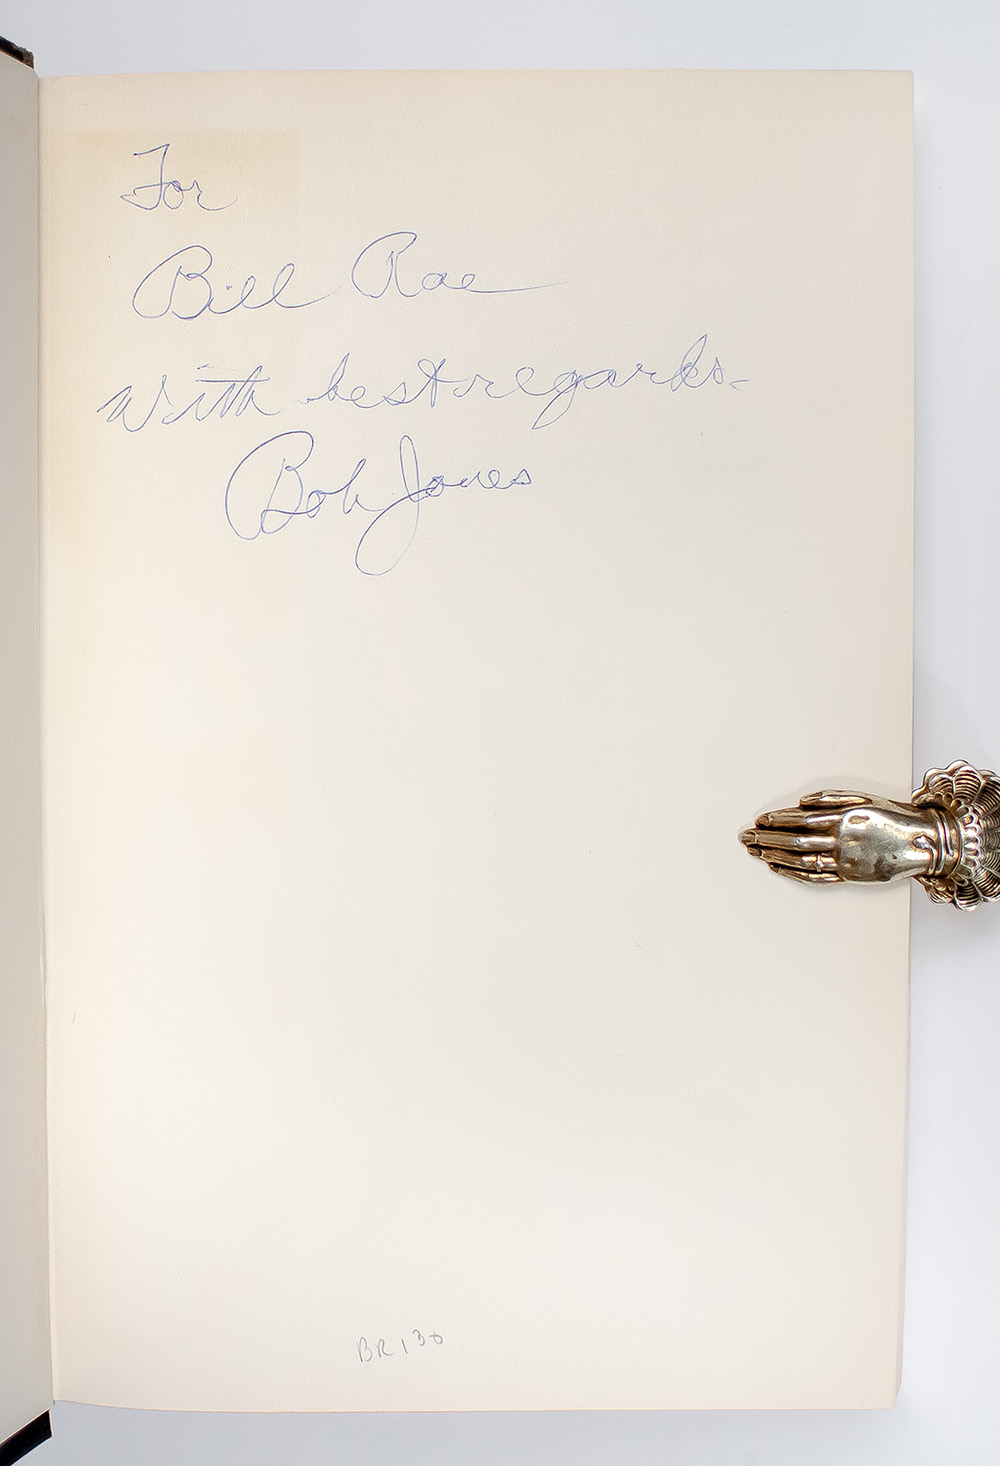 For
Bill Rae
With best regards-
Bob Jones
BR130